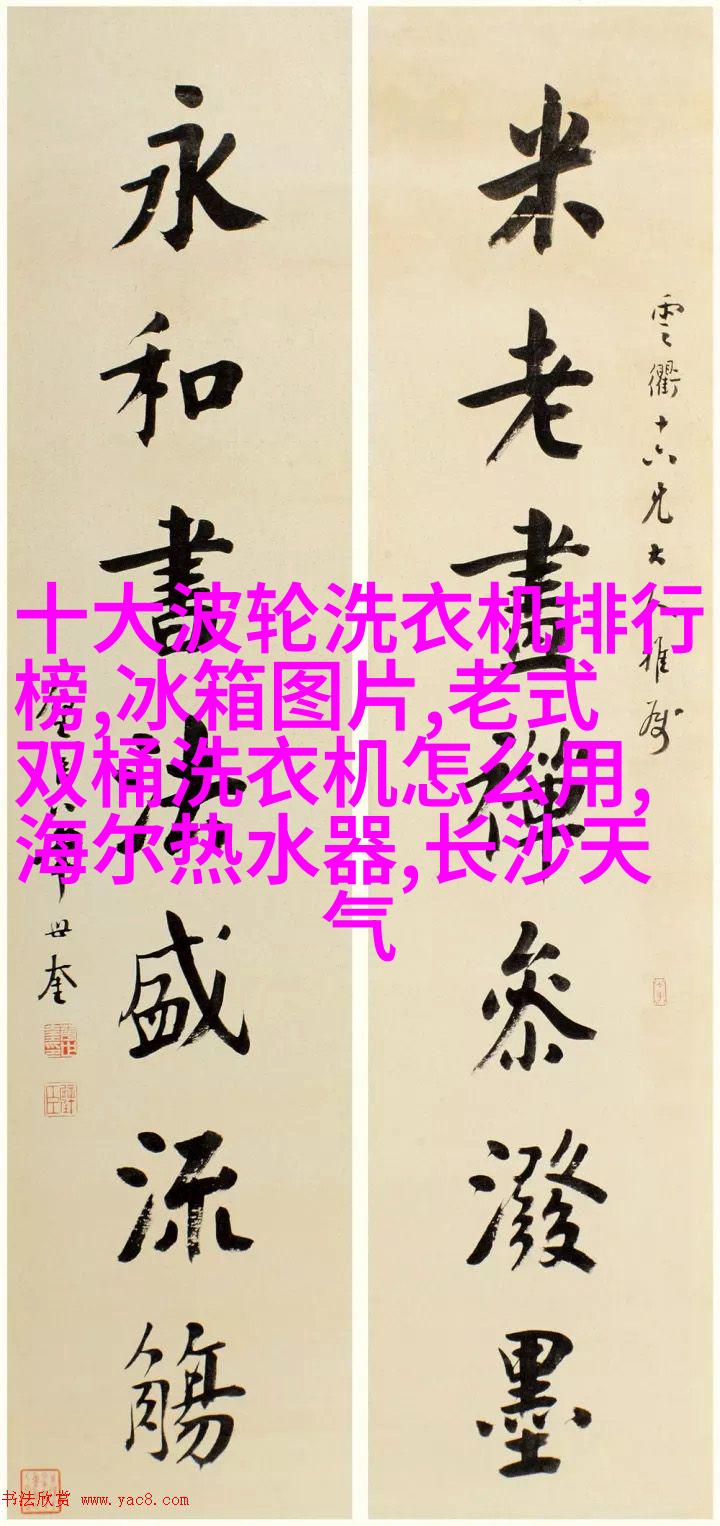 米老畫禪參潑墨
雲衢十六兄大人雅屬
永和書法盛流觴
華世奎
十大波轮洗衣机排行
榜,冰箱图片,老式
双桶洗衣机怎么用,
海尔热水器,长沙天
气
书法欣赏 www.yac8.com